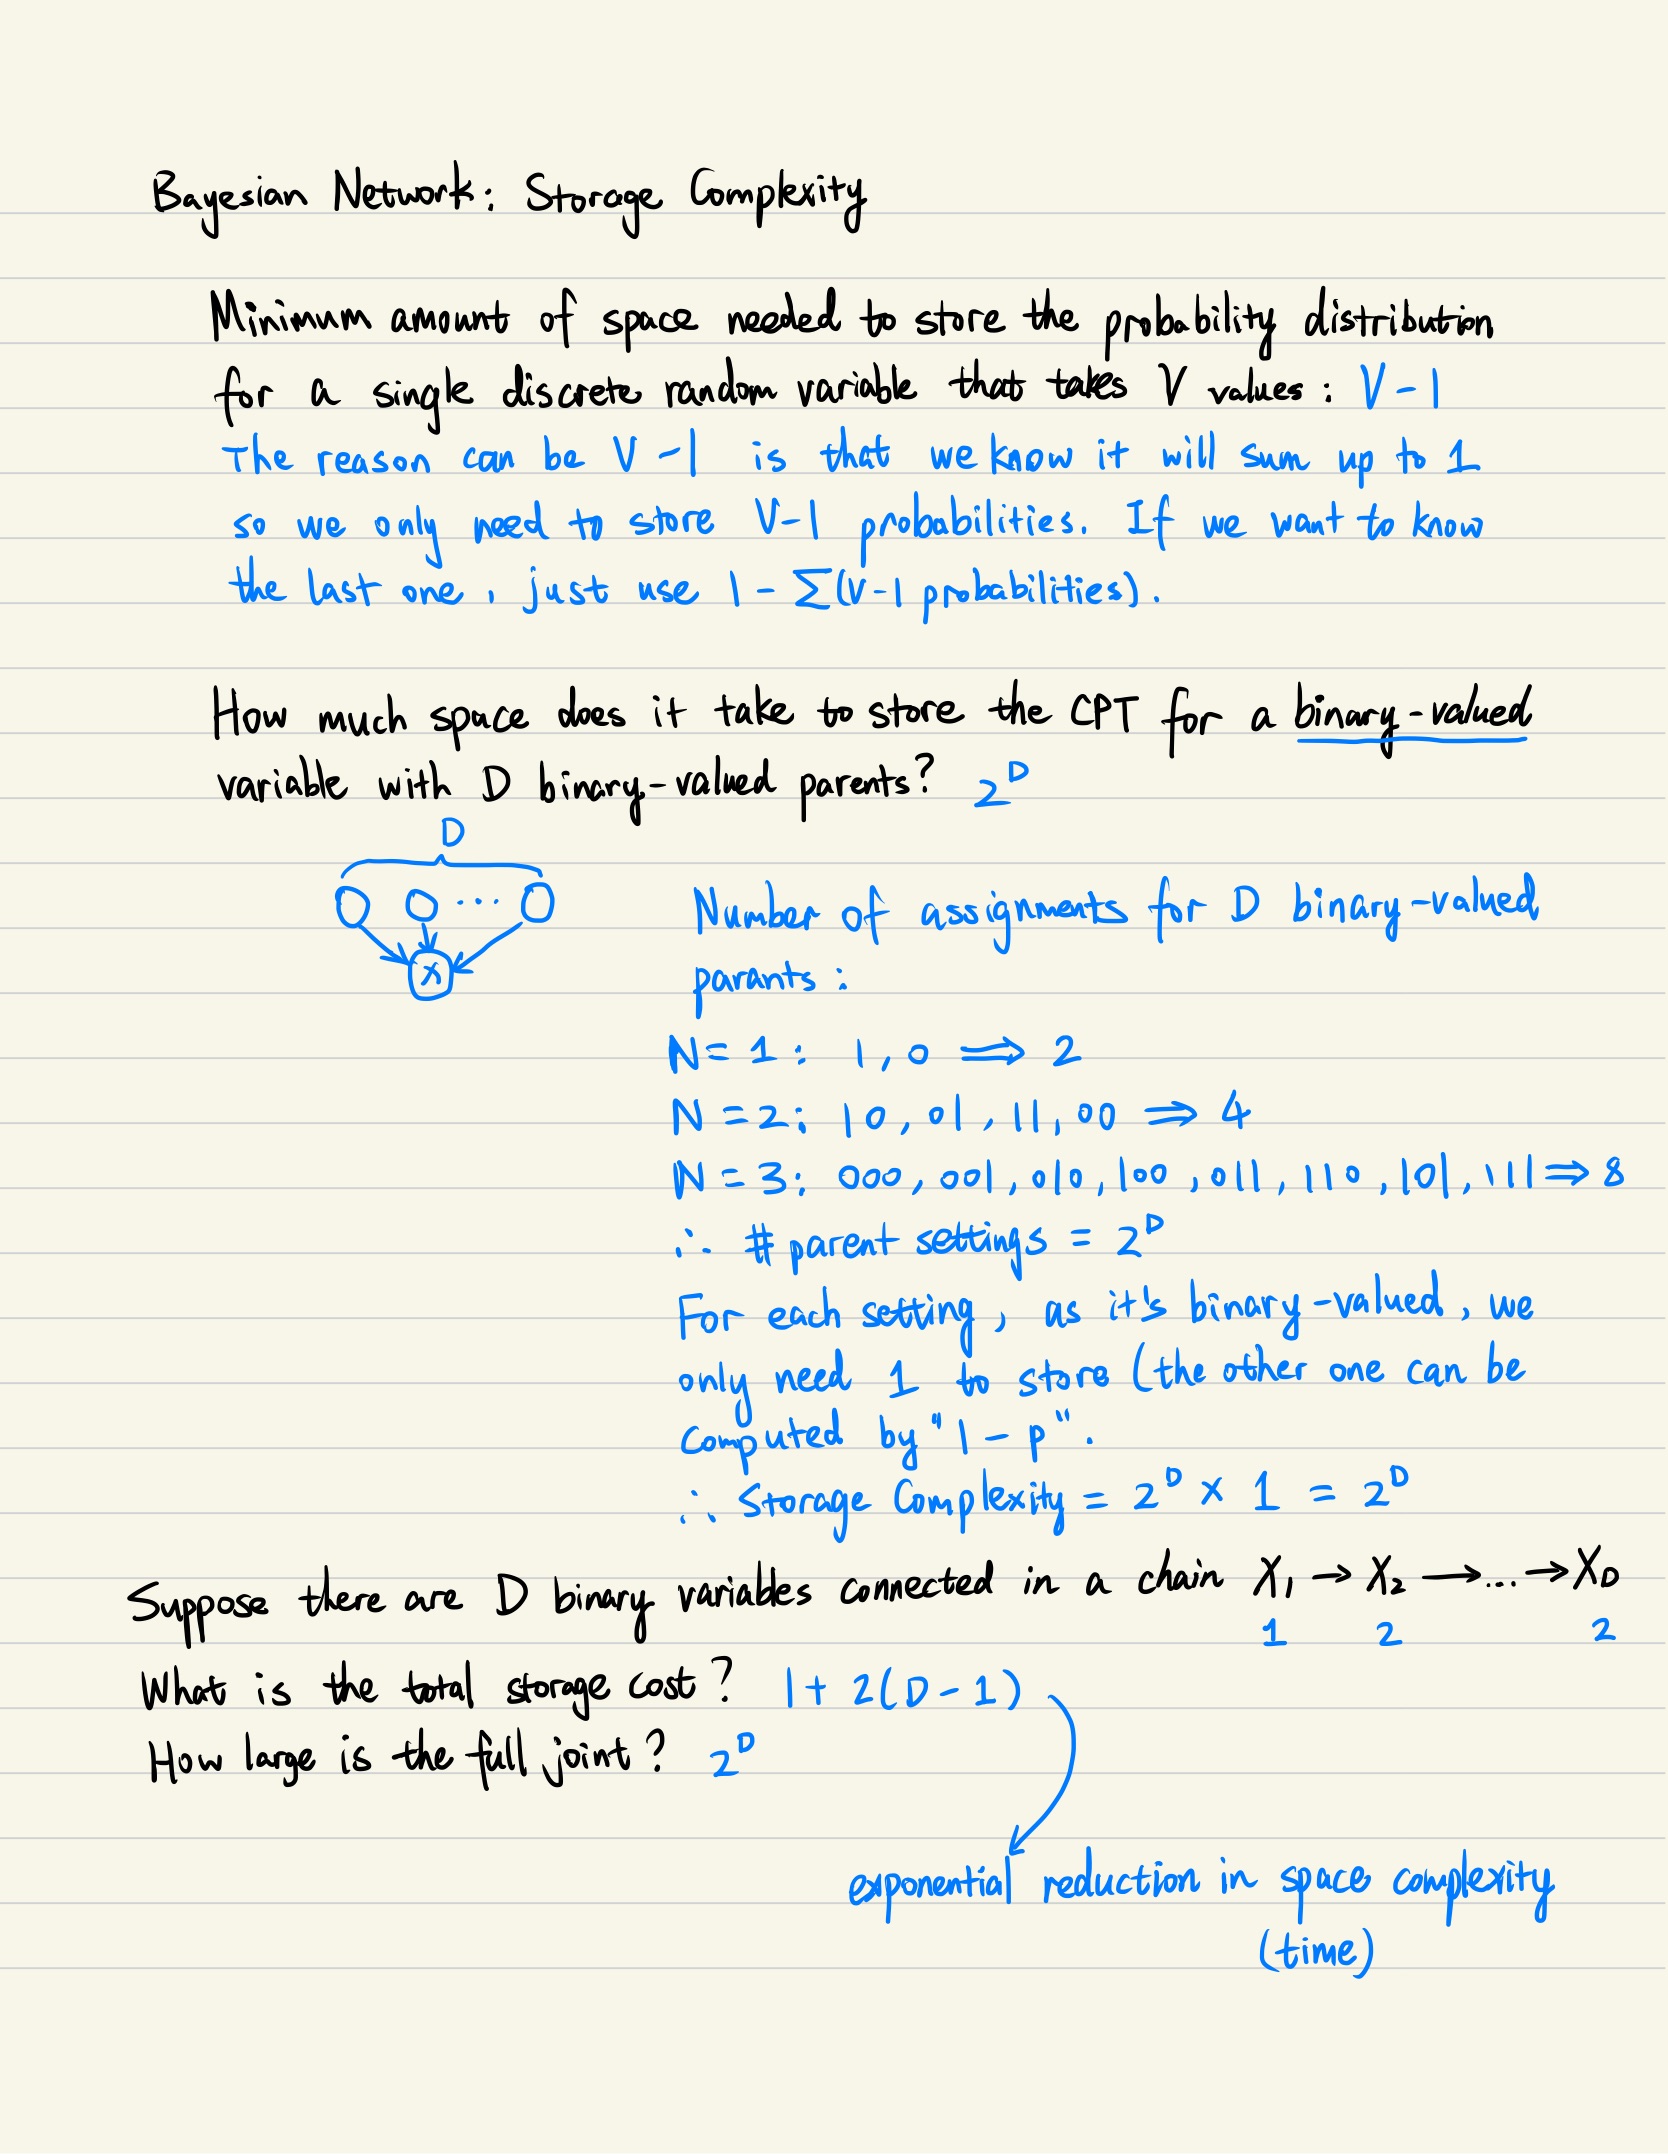 Bayesian Network: Storage Complexity
Minimum amount of space needed to store the probability distribution
for a single discrete random variable that takes V values: V-1
The reason can be V-1 is that we know it will sum up to 1
so we only need to store V-1 probabilities. If we want to know
the last one, just use 1-∑(V-1 probabilities).
How much space does it take to store the CPT for a binary-valued
variable with D binary-valued parents? 2^D
D
...
X
Number of assignments for D binary-valued
parants:
N=1: 1,0 ⟹ 2
N=2: 10,01,11,00 ⟹ 4
N=3: 000,001,010,100,011,110,101,111 ⟹ 8
∴ # parent settings = 2^D
For each setting, as it's binary-valued, we
only need 1 to store (the other one can be
computed by "1-p".
∴ Storage Complexity = 2^D × 1 = 2^D
Suppose there are D binary variables connected in a chain X₁ → X₂ → ... → X_D
1 2 2
What is the total storage cost? 1+2(D-1)
How large is the full joint? 2^D
exponential reduction in space complexity
(time)